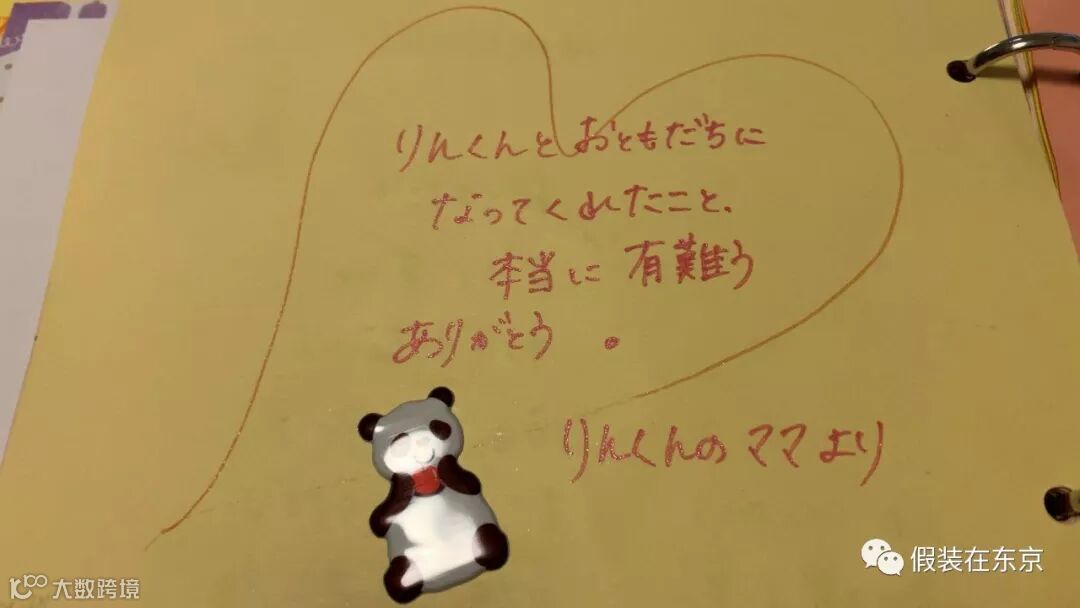 りんくんとおともだちに
なってくれたこと、
本当に有難う
ありがとう。
りんくんのママより
假装在东京
大数跨境